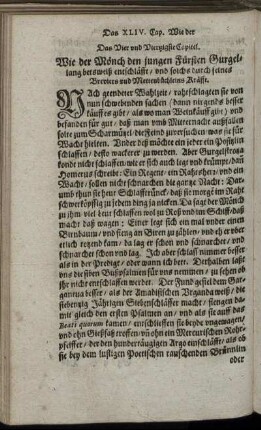 Das XLIV. Cap. Wie der
Das Vier und Viertzigste Capitel.
Wie der Mönch den jungen Fürsten Gurgel-
lang herweiß entschläfft / und solchs durch seines
Breviers und Metenbüchleins Kräffte.
NAch geendeter Wahlzeit / rahtschlagten sie von
nun schwebenden sachen / dann nirgends besser
käuff es gibt / als wo man Weinkäuff gibt; und
befanden für gut / daß man umb Mitternacht außfallen
solte zum Scharmützel / die Feind zu versuchen / was sie für
Wacht hielten. Under deß möchte ein jeder ein kleine weil
schlaffen / desto wackerer zu werden. Aber Gurgelstrossa
konde nicht schlaffen wie er sich auch legt und krümpt / dann
Homerus schreibt: Ein Regent / ein Rahtsherr / und ein
Wacht / sollen nicht schnarchen die gantze Nacht: Dar-
umb thun sie heur Schlafftrünck / daß sie morgen im Raht
schwerköpffig zu jedem ding ja nicken. Da sagt der Mönch
zu ihm / viel beut schlaffen wol zu Roß und im Schiff / daß
macht daß wagen: Einer legt sich ein mal under einen
Birnbaum / und fieng an Biren zu zählen / und eh er vber
etlich zeygend kam / da lag er schon und schnarchet / und
schnarchet schon und lag. Ich aber schlaff nimmer besser /
als in der Predigt / oder wann ich bett. Derhalben laßt
uns die siben Bußpsalmen für uns nemmen / zu sehen ob
ihr nicht entschlaffen werdet. Der Fund gefiel dem Gar-
gantua besser / als der Amadisischen Urganda weiß / die
siebentzig Jährigen Siebenschläffer macht / fiengen da-
mit gleich den ersten Psalmen an / und als sie auff das
Beati quorum kamen / entschlieffen sie beyde ungewagen /
und ohn Gießfaß treffen / vn ohn ein Mercurischen Rohr-
pfeiffer / der den hundertäugigen Argo einschläfft / als ob
sie bey dem lustigen Poetischen rauschenden Brünnlin
oder